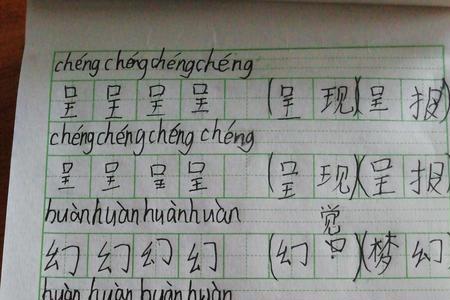 chéng chéng chéng chéng
呈 呈 呈 呈 (呈现)(呈报
chéng chéng chéng chéng
呈 呈 呈 呈 (呈现)(呈报
huàn huàn huàn huàn
觉
幻 幻 幻 幻 (幻 )(梦幻
huàn huàn huàn huàn